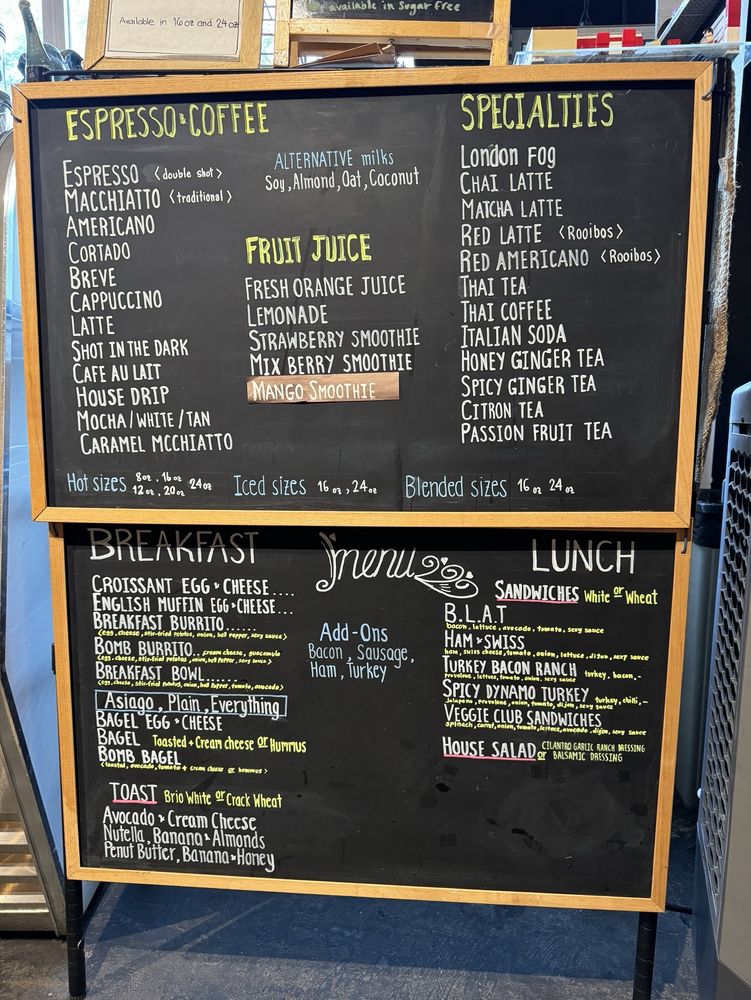 Available in 16oz and 24oz
available in Sugar Free
ESPRESSO & COFFEE
ESPRESSO <double shot>
MACCHIATTO <traditional>
AMERICANO
CORTADO
BREVE
CAPPUCCINO
LATTE
SHOT IN THE DARK
CAFE AU LAIT
HOUSE DRIP
MOCHA/WHITE/TAN
CARAMEL MCCHIATTO
ALTERNATIVE milks
Soy, Almond, Oat, Coconut
FRUIT JUICE
FRESH ORANGE JUICE
LEMONADE
STRAWBERRY SMOOTHIE
MIX BERRY SMOOTHIE
MANGO SMOOTHIE
SPECIALTIES
LONDON FOG
CHAI LATTE
MATCHA LATTE
RED LATTE <Rooibos>
RED AMERICANO <Rooibos>
THAI TEA
THAI COFFEE
ITALIAN SODA
HONEY GINGER TEA
SPICY GINGER TEA
CITRON TEA
PASSION FRUIT TEA
Hot sizes 8oz, 16oz 24oz
12oz, 20oz
Iced sizes 16oz, 24oz
Blended sizes 16oz 24oz
BREAKFAST
CROISSANT EGG & CHEESE....
ENGLISH MUFFIN EGG & CHEESE...
BREAKFAST BURRITO......
<egg, cheese, stir-fried potatos, onion, bell pepper, sexy sauce>
BOMB BURRITO.. cream cheese, guacamole
<egg, cheese, stir-fried potatos, onion, bell pepper, sexy sauce>
BREAKFAST BOWL.......
<egg, cheese, stir-fried potatos, onion, bell pepper, tomato, avocado>
Asiago, Plain, Everything
BAGEL EGG & CHEESE
BAGEL Toasted + Cream cheese or Hummus
BOMB BAGEL
<toasted, avocado, tomato + cream cheese or hummus>
TOAST Brio White or Crack Wheat
Avocado & Cream Cheese
Nutella, Banana & Almonds
Penut Butter, Banana & Honey
menu
Add-Ons
Bacon, Sausage,
Ham, Turkey
LUNCH
SANDWICHES White or Wheat
B.L.A.T
bacon, lettuce, avocado, tomato, sexy sauce
HAM & SWISS
ham, swiss cheese, tomato, onion, lettuce, dijon, sexy sauce
TURKEY BACON RANCH turkey, bacon,-
provolone, lettuce, tomato, onion, sexy sauce
SPICY DYNAMO TURKEY turkey, chilli,-
jalapeno, provolone, onion, tomato, dijon, sexy sauce
VEGGIE CLUB SANDWICHES
spinach, carrot, onion, tomato, lettuce, avocado, dijon, sexy sauce
HOUSE SALAD CILANTRO GARLIC RANCH DRESSING
or BALSAMIC DRESSING